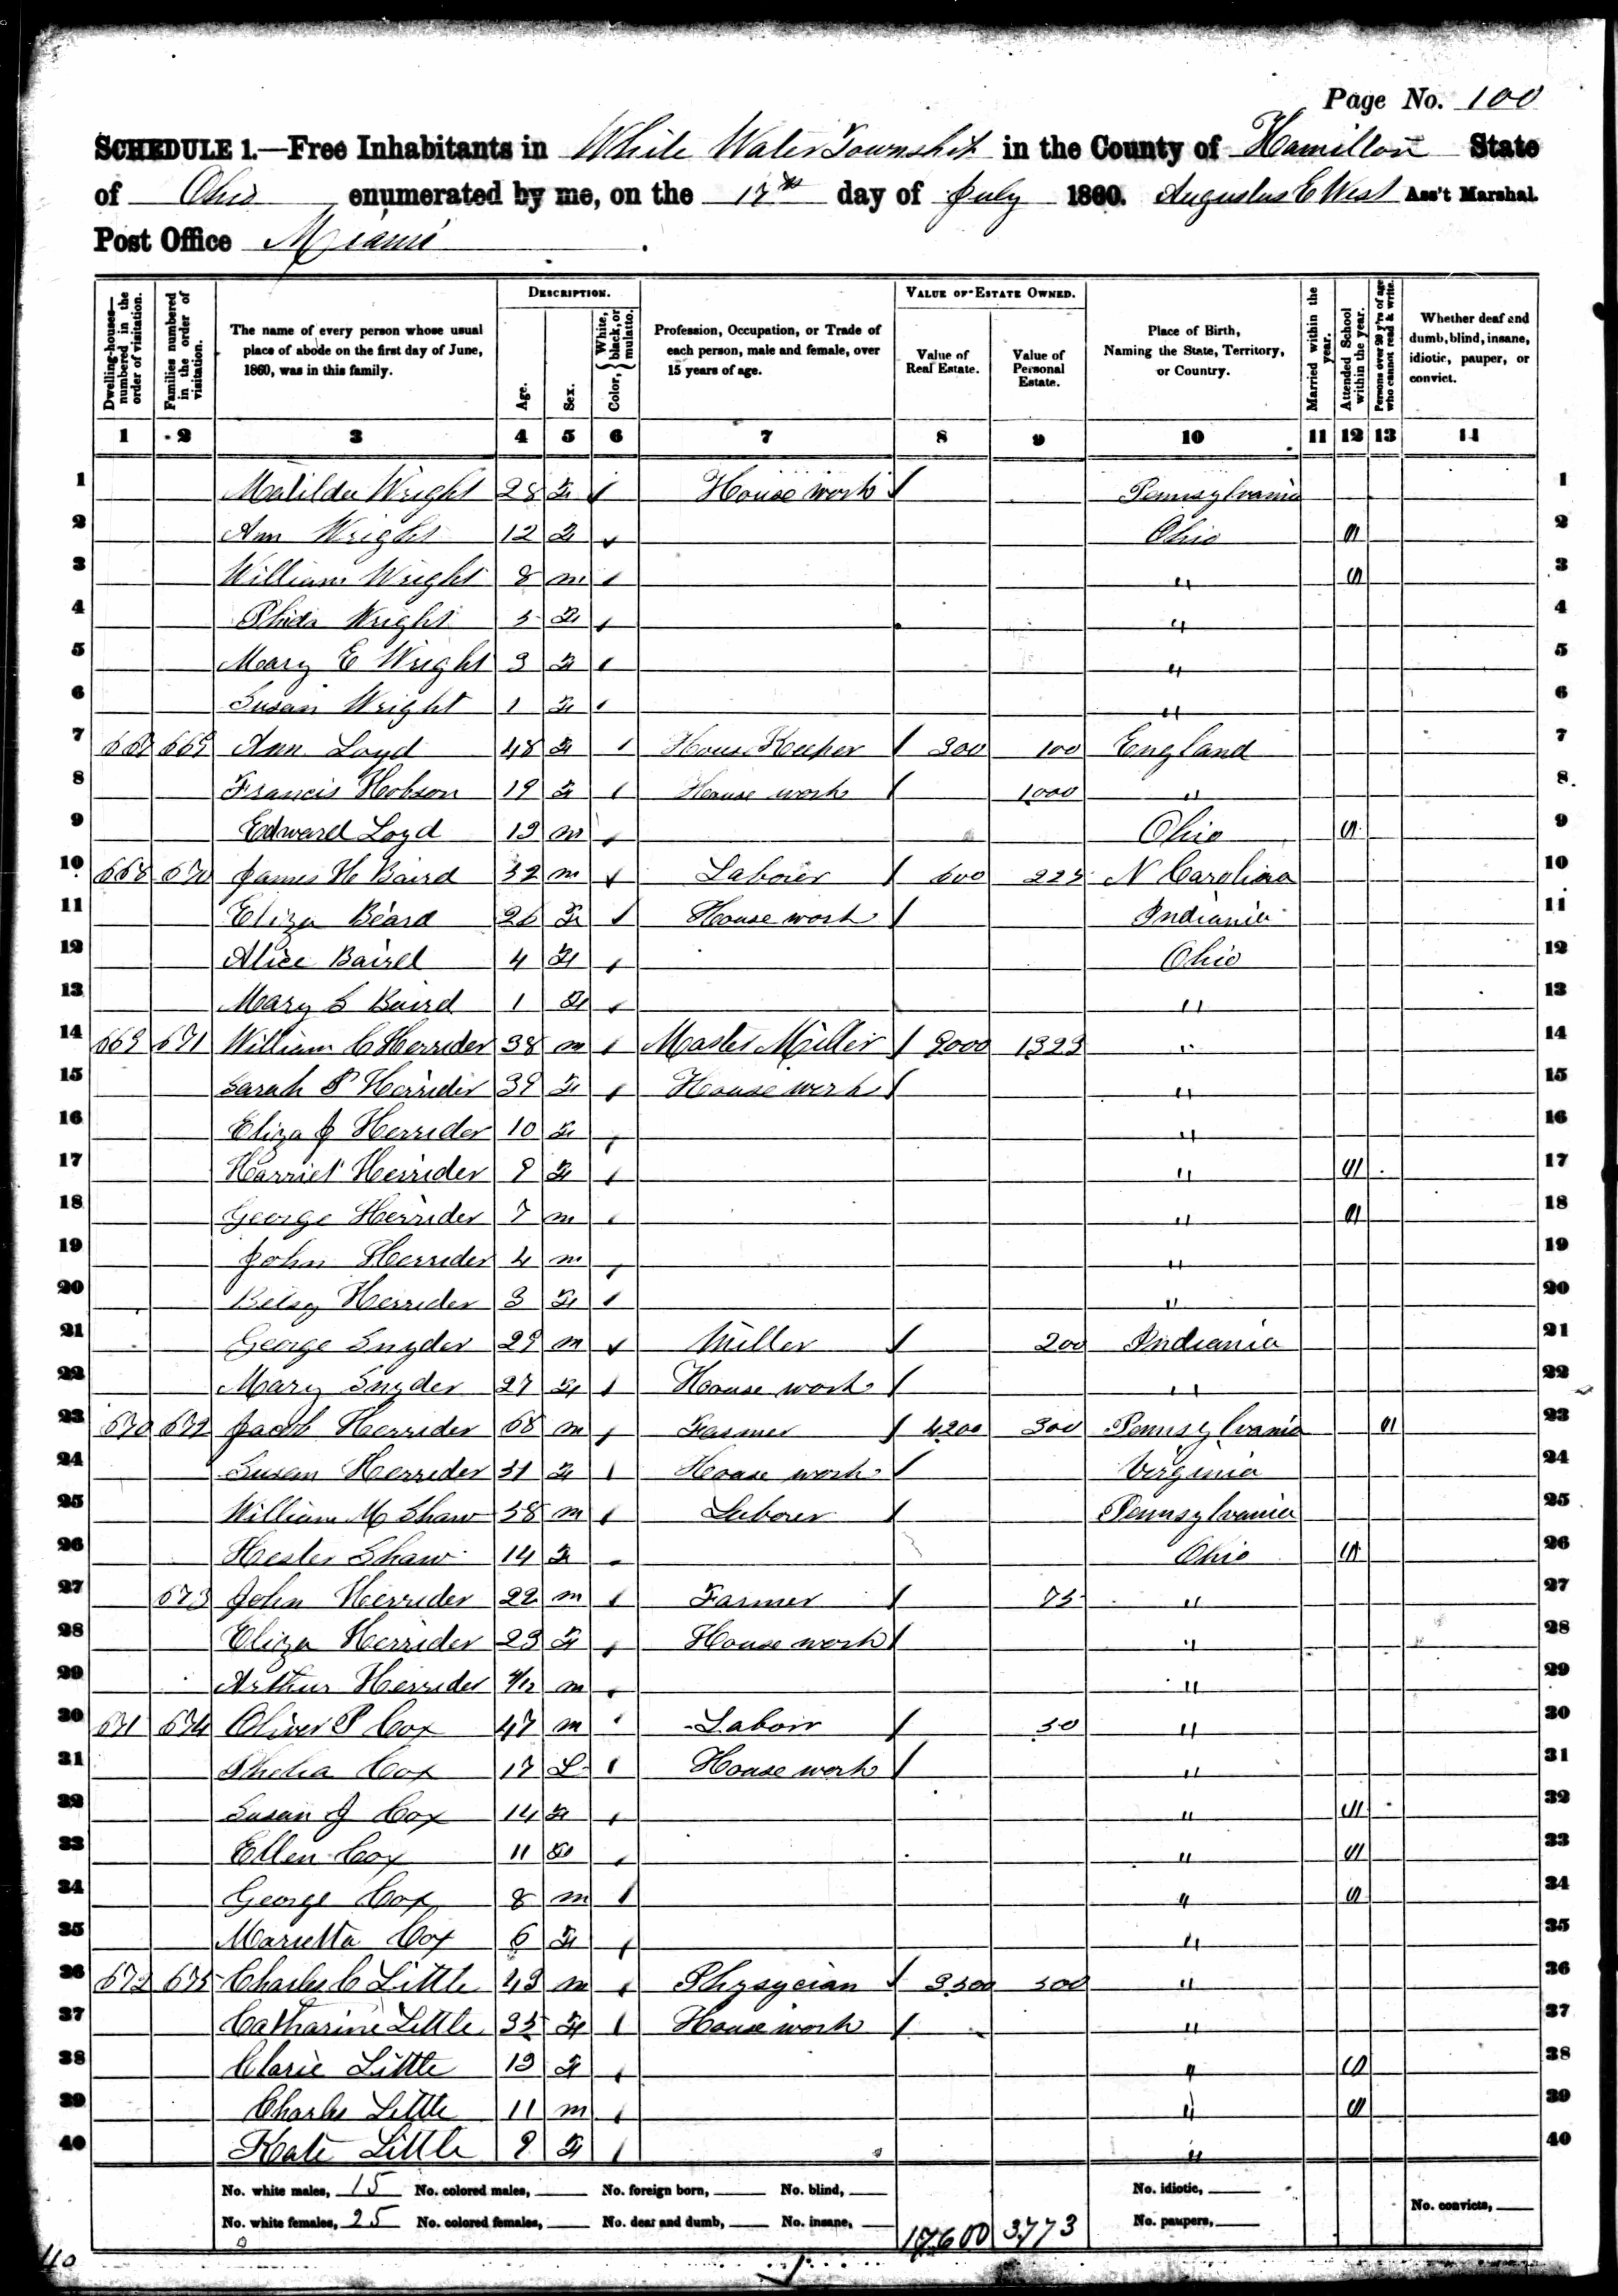 Page No. 100
SCHEDULE 1.—Free Inhabitants in White Water Township in the County of Hamilton State
of Ohio enumerated by me, on the 17th day of July 1860. Augustus E West Ass't Marshal.
Post Office Miami
Dwelling-houses—numbered in the order of visitation.
Families numbered in the order of visitation.
The name of every person whose usual place of abode on the first day of June, 1860, was in this family.
DESCRIPTION.
Age.
Sex.
Color, White, black, or mulatto.
Profession, Occupation, or Trade of each person, male and female, over 15 years of age.
VALUE OF ESTATE OWNED.
Value of Real Estate.
Value of Personal Estate.
Place of Birth, Naming the State, Territory, or Country.
Married within the year.
Attended School within the year.
Persons over 20 y'rs of age who cannot read & write.
Whether deaf and dumb, blind, insane, idiotic, pauper, or convict.
1 2 3 4 5 6 7 8 9 10 11 12 13 14
1 Matilda Wright 28 F / House work / Pennsylvania 1
2 Ann Wright 12 F / Ohio 1 2
3 William Wright 8 m / " 1 3
4 Wright 5 F / " 4
5 Mary E Wright 3 F / " 5
6 Susan Wright 1 F / " 6
7 667 669 Ann Loyd 48 F / House Keeper / 300 100 England 7
8 Francis Hobson 19 F / House work / 1000 " 8
9 Edward Loyd 13 m / Ohio 1 9
10 668 670 James H Baird 32 m / Laborer / 600 225 N Carolina 10
11 Eliza Beard 26 F / House work / Indiania 11
12 Alice Baird 4 F / Ohio 12
13 Mary S Baird 1 F / " 13
14 669 671 William C Herrider 38 m / Master Miller / 9000 1323 " 14
15 Sarah P Herrider 39 F / House work / " 15
16 Eliza J Herrider 10 F / " 16
17 Harriet Herrider 9 F / " 1 17
18 George Herrider 7 m / " 1 18
19 John Herrider 4 m / " 19
20 Betsy Herrider 3 F / " 20
21 George Snyder 29 m / Miller / 200 Indiania 21
22 Mary Snyder 27 F / House work / " 22
23 670 672 Jacob Herrider 68 m / Farmer / 4200 300 Pennsylvania 1 23
24 Susan Herrider 51 F / House work / Virginia 24
25 William M Shaw 38 m / Laborer / Pennsylvania 25
26 Hester Shaw 14 F / Ohio 1 26
27 673 John Herrider 22 m / Farmer / 75 " 27
28 Eliza Herrider 23 F / House work / " 28
29 Arthur Herrider 4/12 m / " 29
30 671 674 Oliver P Cox 47 m / Laborr / 50 " 30
31 Cox 17 F / House work / " 31
32 Susan J Cox 14 F / " 1 32
33 Ellen Cox 11 F / " 1 33
34 George Cox 8 m / " 1 34
35 Marietta Cox 6 F / " 35
36 672 675 Charles C Little 43 m / Physycian / 3500 500 " 36
37 Catharine Little 35 F / House work / " 37
38 Clarie Little 13 F / " 1 38
39 Charles Little 11 m / " 1 39
40 Kate Little 9 F / " 40
No. white males, 15 No. colored males, No. foreign born, No. blind, No. idiotic,
No. white females, 25 No. colored females, No. deaf and dumb, No. insane, 17600 3773 No. paupers, No. convicts,
40